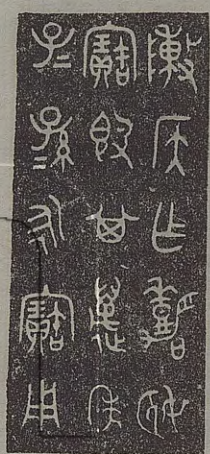 敶侯乍嘉姬
寶𣪘其萬年
子=孫=永寶用